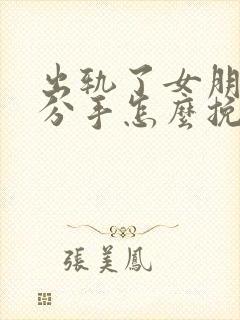 出轨了女朋
分手怎麼挽
張美鳳